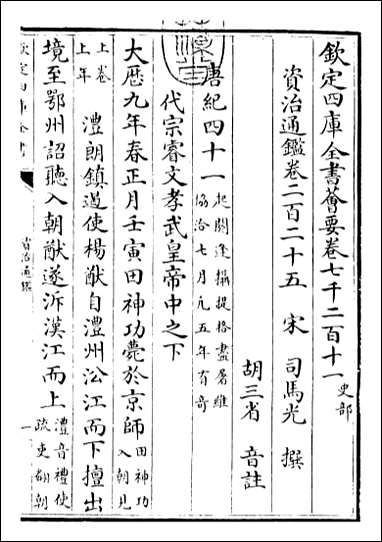 欽定四庫全書薈要卷七千二百十一 史部
資治通鑑卷二百二十五
宋 司馬光 撰
胡三省 音註
唐紀四十一 起閼逢攝提格盡屠維
協洽七月凡五年有奇
代宗睿文孝武皇帝中之下
大厯九年春正月壬寅田神功薨於京師 田神功
入朝見
上卷
上年
澧朗鎮遏使楊猷自澧州沿江而下擅出
境至鄂州詔聽入朝猷遂泝漢江而上 澧音禮使
疏吏翻朝
欽定四庫全書
資治通鑑
一